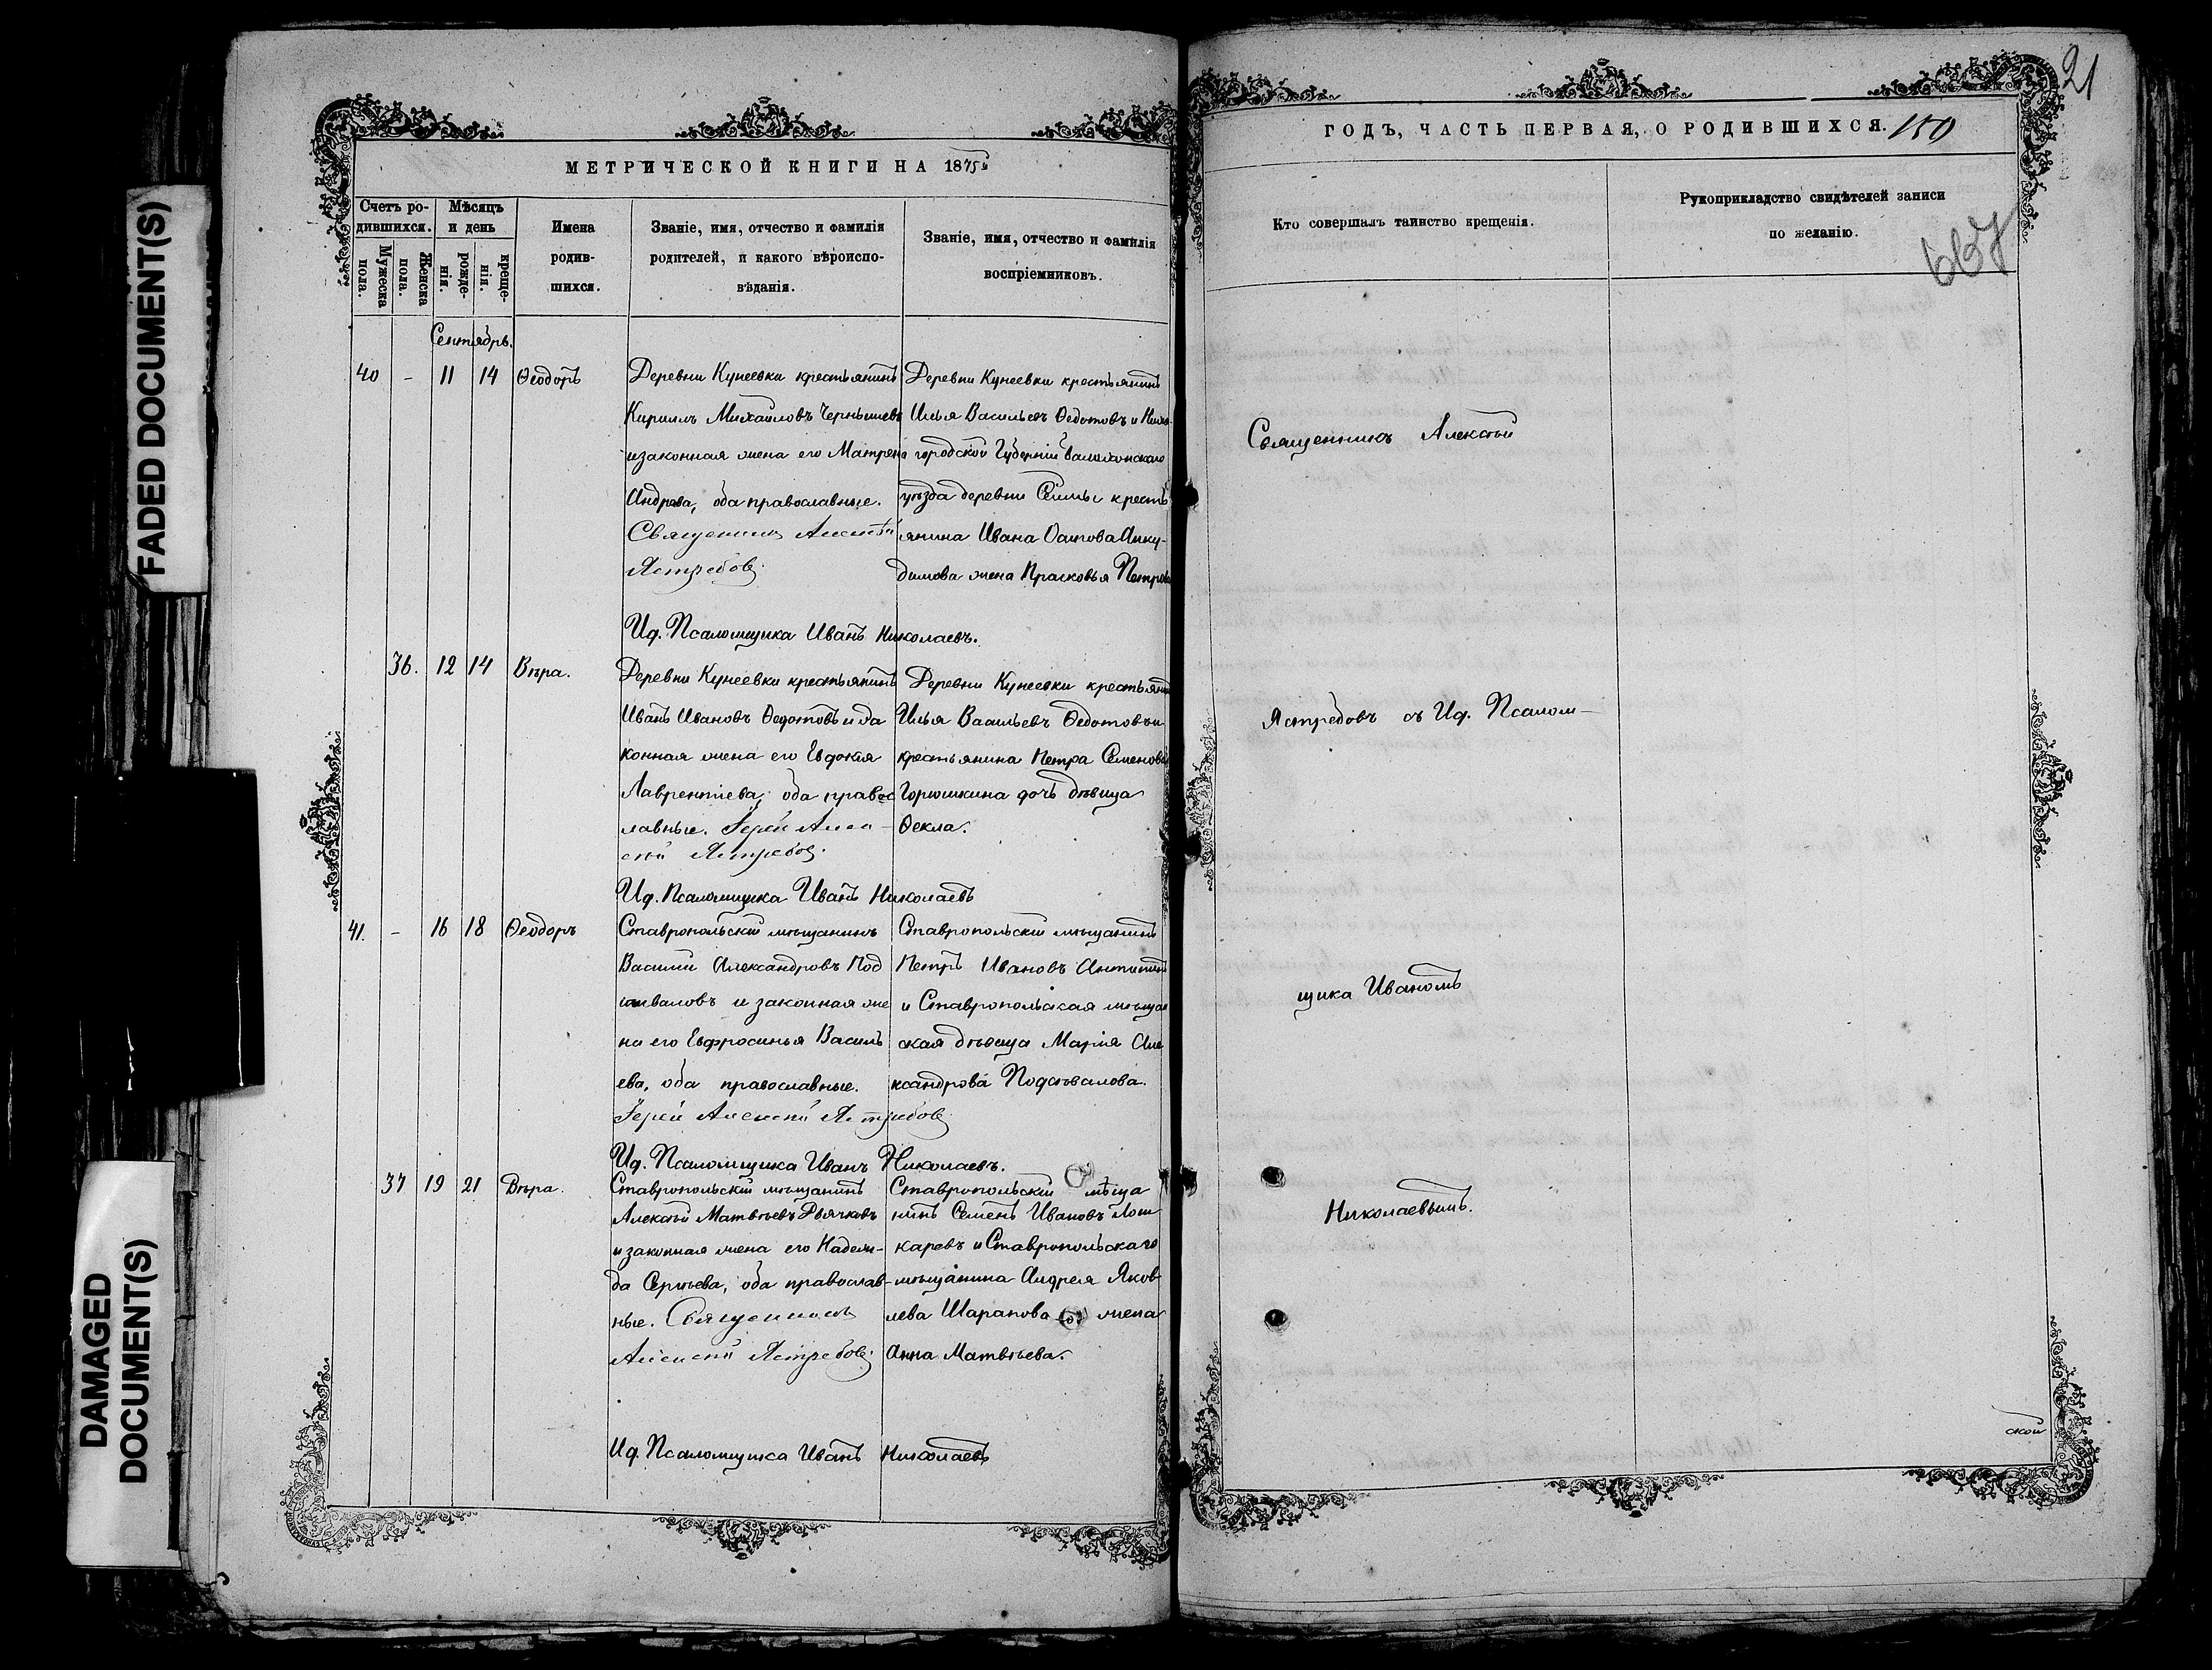 FADED DOCUMENT(S)
DAMAGED
DOCUMENT(S)
МЕТРИЧЕСКОЙ КНИГИ НА 1875й
Счетъ ро-
дившихся.
Мужеска
пола.
Женска
пола.
Мѣсяцъ
и день
рожде-
нія.
креще-
нія.
Имена
родив-
шихся.
Званіе, имя, отчество и фамилія
родителей, и какого вѣроиспо-
вѣданія.
Званіе, имя, отчество и фамилія
воспріемниковъ.
Сентябрь.
40 - 11 14 Ѳеодоръ
Деревни Кунеевки крестьянинъ
Кириллъ Михаиловъ Чернышевъ
и законная жена его Матрена
Андреева, оба православные.
Священникъ Алексѣй
Ястребовъ.
Деревни Кунеевки крестьянинъ
Илья Васильевъ Ѳедотовъ и Ниже-
городской Губерніи Балахонскаго
уѣзда деревни Сеимы кресть
янина Ивана Осипова Анку-
динова жена Прасковья Петрова
Ид. Псаломщика Иванъ Николаевъ.
36. 12 14 Вѣра.
Деревни Кунеевки крестьянинъ
Иванъ Ивановъ Ѳедотовъ и за
конная жена его Евдокія
Лаврентіева, оба правос
лавные. Іерей Алек-
сѣй Ястребовъ.
Деревни Кунеевки крестьянинъ
Илья Васильевъ Ѳедотовъ и
крестьянина Петра Семенова
Горюшкина дочь дѣвица
Ѳекла.
Ид. Псаломщика Иванъ Николаевъ
41. - 16 18 Ѳеодоръ
Ставропольскій мѣщанинъ
Василій Александровъ Под
сѣваловъ и законная же
на его Евфросинья Василь
ева, оба православные.
Іерей Алексѣй Ястребовъ
Ставропольскій мѣщанинъ
Петръ Ивановъ Антипинъ
и Ставропольская мѣщан
ская дѣвица Марія Але
ксандрова Подсѣвалова.
Ид. Псаломщика Иванъ Николаевъ.
37 19 21 Вѣра.
Ставропольскій мѣщанинъ
Алексѣй Матвѣевъ Рьячковъ
и законная жена его Надеж-
да Сергѣева, оба православ-
ные. Священникъ
Алексѣй Ястребовъ.
Ставропольскій мѣща
нинъ Семенъ Ивановъ Лош
каревъ и Ставропольскаго
мѣщанина Андрея Яков
лева Шарапова жена
Анна Матвѣева.
Ид. Псаломщика Иванъ Николаевъ
21
ГОДЪ, ЧАСТЬ ПЕРВАЯ, О РОДИВШИХСЯ. 150
Кто совершалъ таинство крещенія.
Рукоприкладство свидѣтелей записи
по желанію.
667
Священникъ Алексѣй
Ястребовъ съ Ид. Псалом-
щика Иваномъ
Николаевымъ.
ской